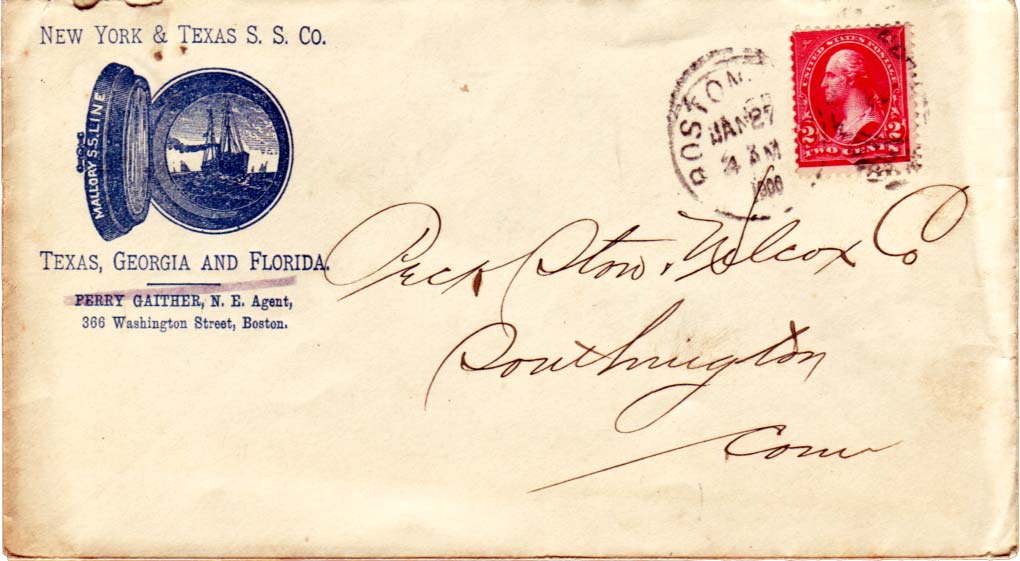 NEW YORK & TEXAS S. S. CO.
MALLORY S.S. LINE
TEXAS, GEORGIA AND FLORIDA.
PERRY GAITHER, N. E. Agent,
366 Washington Street, Boston.
BOSTON, M
JAN 27
4 AM
1900
UNITED STATES POSTAGE
2 2
TWO CENTS
Peck Stow & Wilcox Co
Southington
Conn